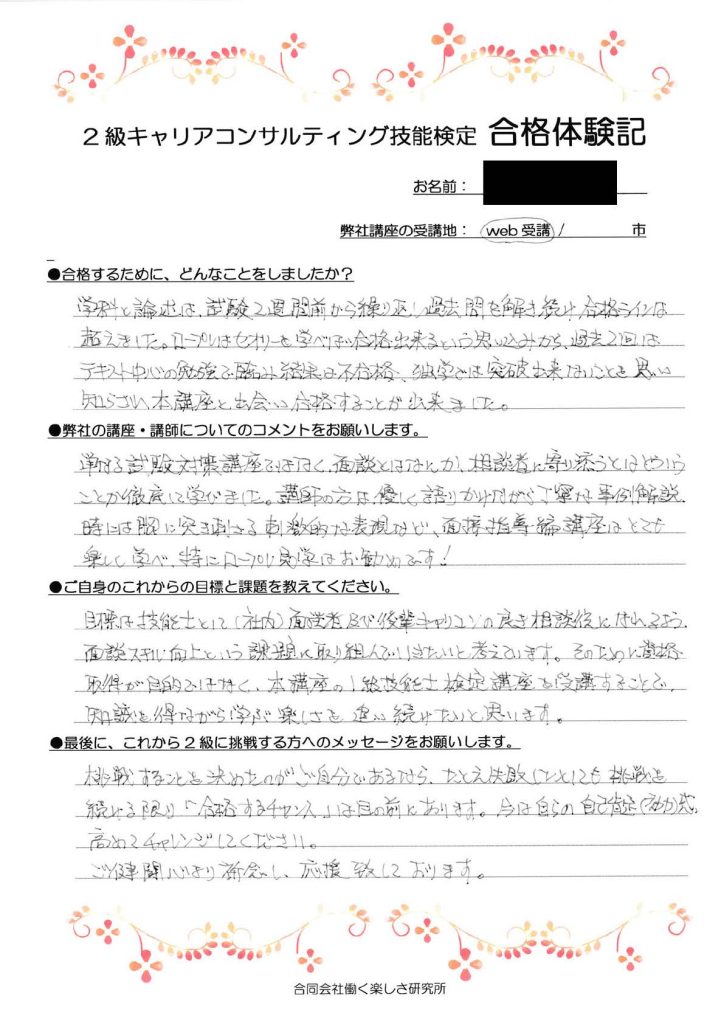 2級キャリアコンサルティング技能検定 合格体験記
お名前：
弊社講座の受講地： web受講 / 市
●合格するために、どんなことをしましたか？
学科と論述は、試験2週間前から繰り返し過去問を解き続け合格ラインは
超えました。ロープレはセオリーを学べば合格出来るという思い込みから、過去2回は
テキスト中心の勉強で臨み結果は不合格、独学では突破出来ないことを思い
知らされ本講座と出会い合格することが出来ました。
●弊社の講座・講師についてのコメントをお願いします。
単なる試験対策講座ではなく、面談とはなんか、相談者に寄り添うとはどういう
ことか徹底して学びました。講師の方は優しく語りかけながら丁寧な事例解説、
時には胸に突き刺さる刺激的な表現など、面接指導編講座はとても
楽しく学べ、特にロープレ見学はお勧めです！
●ご自身のこれからの目標と課題を教えてください。
目標は技能士として（社内）面談者及び後輩キャリコンの良き相談役になれるよう、
面談スキル向上という課題に取り組んでいきたいと考えています。そのために資格
取得が目的ではなく、本講座の1級技能士検定講座を受講することで、
知識を得ながら学ぶ楽しさを追い続けたいと思います。
●最後に、これから2級に挑戦する方へのメッセージをお願いします。
挑戦することを決めたのがご自分であるなら、たとえ失敗したとしても挑戦を
続ける限り「合格するチャンス」は目の前にあります。今は自らの自己肯定（効力）感、
高めてチャレンジしてください。
ご健闘心より祈念し、応援致しております。
合同会社働く楽しさ研究所